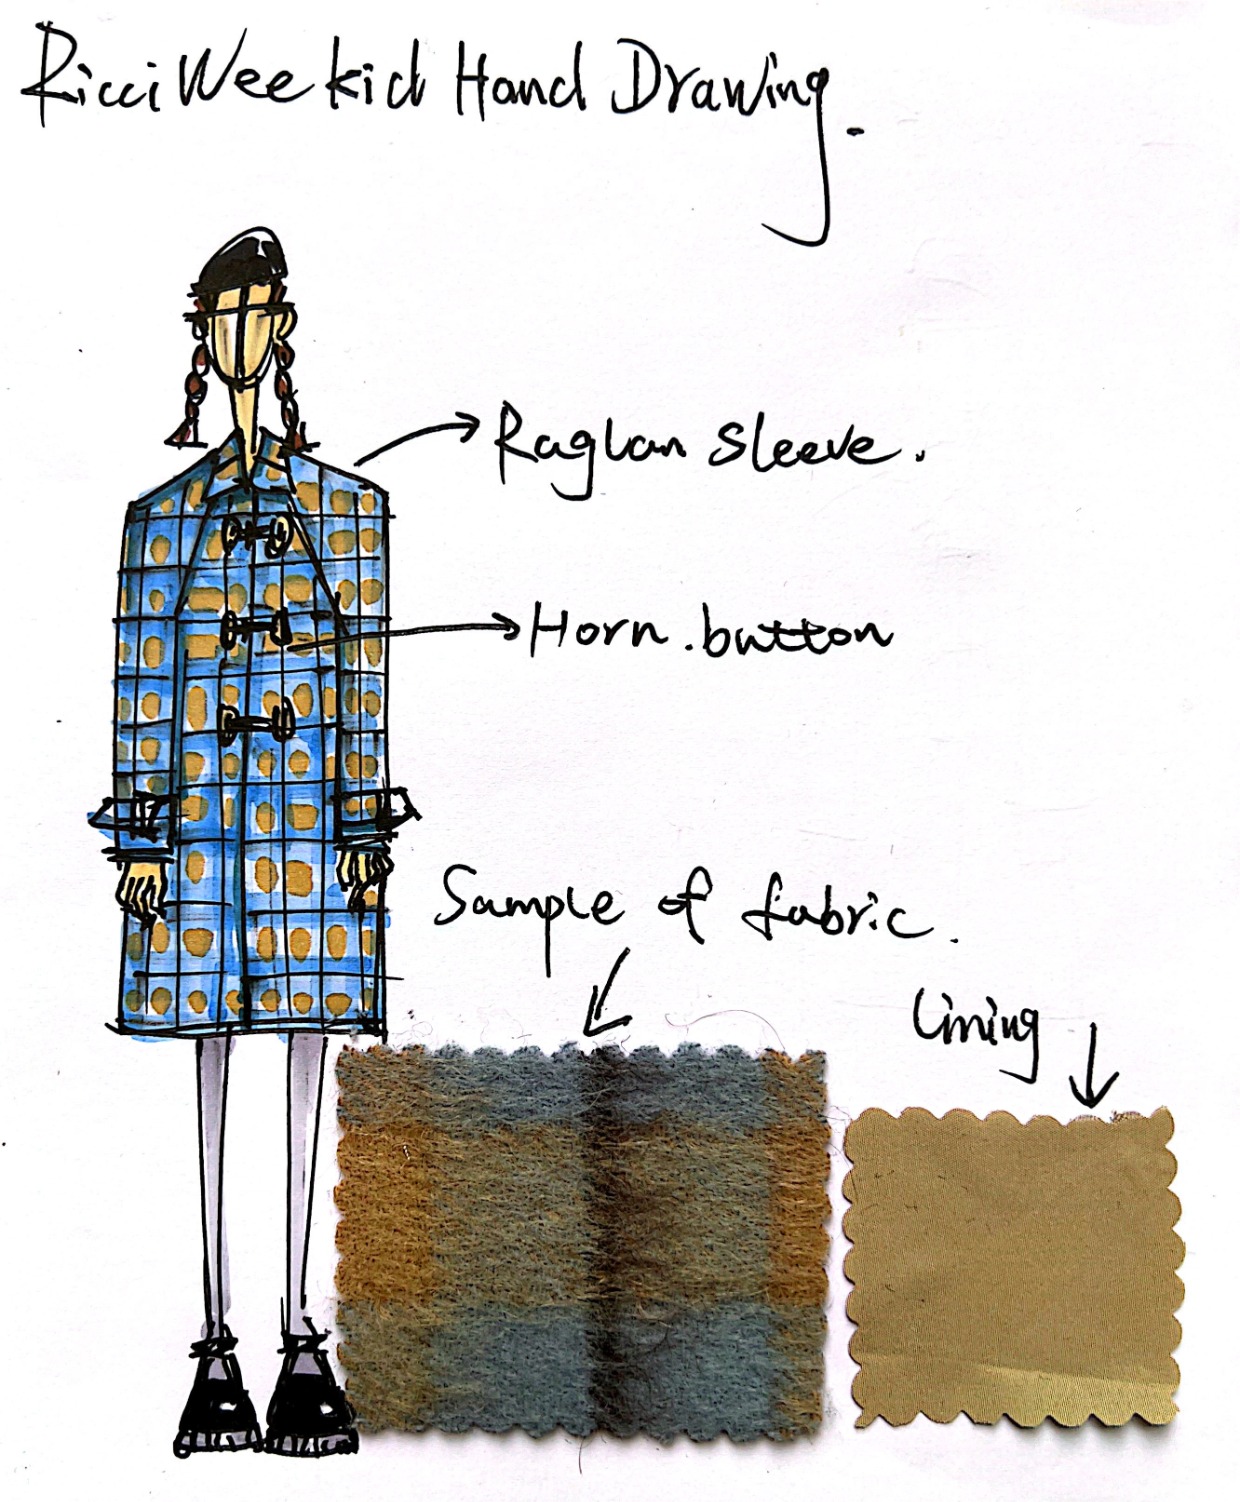 Ricci Wee kid Hand Drawing.
Raglan Sleeve.
Horn.button
Sample of fabric.
Lining